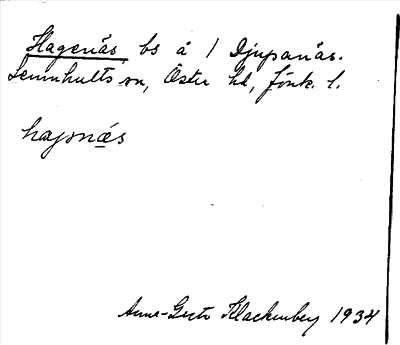 Hagenäs bs å 1 Djupanäs.
Lemnhults sn, Östra hd, Jönk. l.
hagənä̱s
Anna-Greta Klackenberg 1934